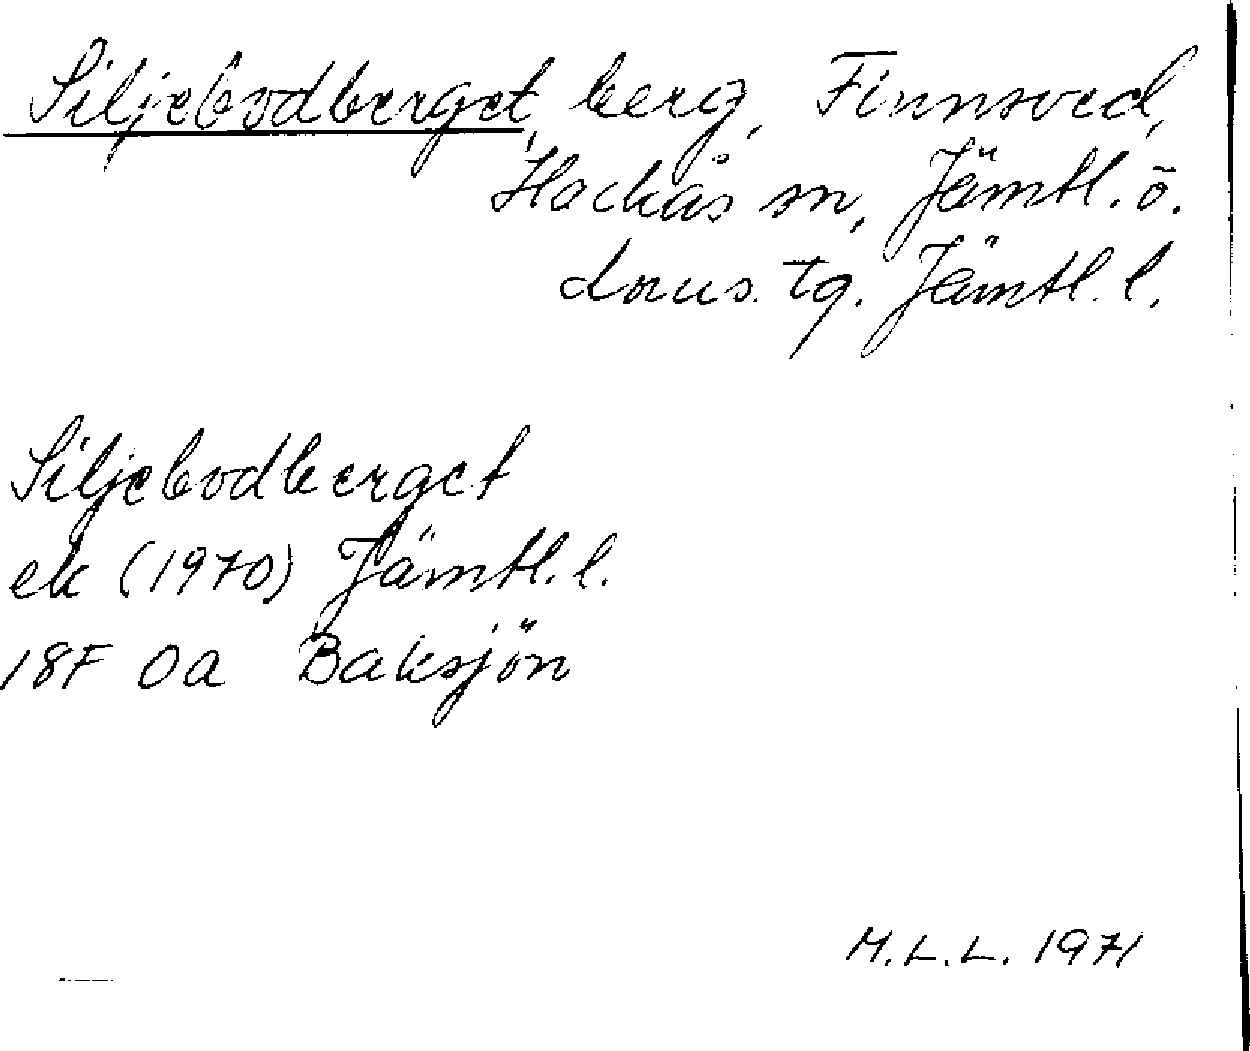 Siljebodberget, berg, Finnsved,
Hackås sn, Jämtl. ö.
doms. tg. Jämtl. l.
Siljebodberget
ek (1970) Jämtl. l.
18F 0a Baksjön
M.L.L. 1971